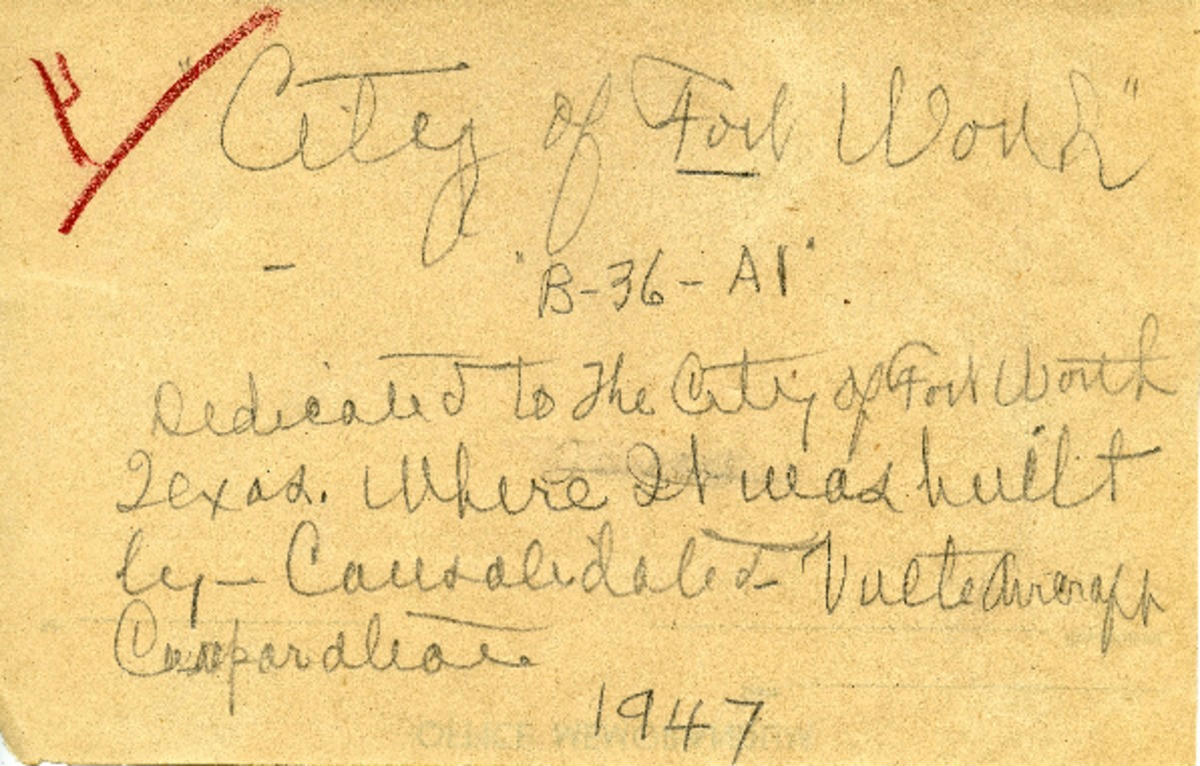 "City of Fort Worth"
- "B-36-A1".
Dedicated to The City of Fort Worth
Texas. Where It was built
by- Consolidated- Vultee Aircraft
Corporation
1947